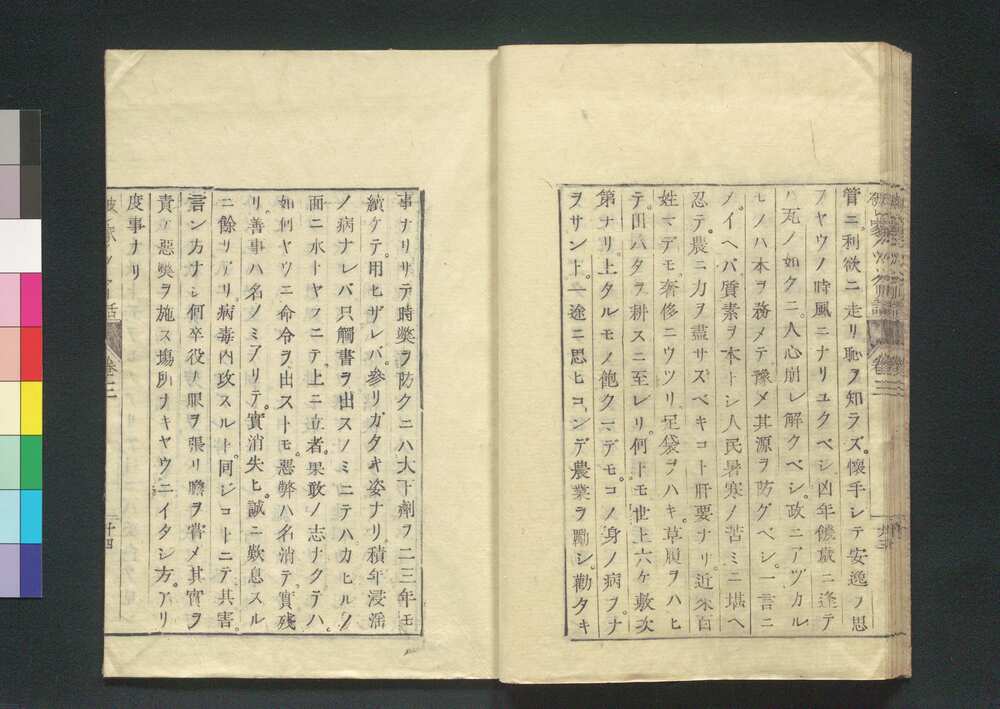 管ニ利欲ニ走リ恥ヲ知ラズ。懷手シテ安逸ヲ思
フヤウノ時風ニナリユクベシ凶年饑歳ニ逢テ
ハ瓦ノ如クニ。人心崩レ解クベシ。政ニアヅカル
モノハ本ヲ務メテ豫メ其源ヲ防グベシ。一言ニ
ノイヘバ質素ヲ本トシ人民暑寒ノ苦ミニ堪ヘ
忍テ。農ニ力ヲ盡サズベキコト肝要ナリ。近来百
姓マデモ。奢侈ニウツリ。足袋ヲハキ。草履ヲハヒ
テ。田ハタヲ耕スニ至レリ。何トモ世上六ケ敷次
第ナリ。上タルモノ飽クマデモ。コノ身ノ病ヲナ
ヲサント。一途ニ思ヒコンデ農業ヲ勵シ。勸タキ
事ナリサテ時獘ヲ防クニハ大十劑ヲ二三年モ
續ケテ。用ヒザレバ。參リガタキ姿ナリ。積年浸淫
ノ病ナレバ只觸書ヲ出スノミニテハカヒルノ
面ニ水トヤラニテ。上ニ立者。果敢ノ志ナクテハ。
如何ヤウニ命令ヲ出ストモ。惡弊ハ名消テ。實残
リ。善事ハ名ノミアリテ。實消失ヒ。誠ニ歎息スル
ニ餘リアリ病毒内攻スルト。同ジコトニテ其害。
言ン方ナシ何卒役人眼ヲ張リ膽ヲ嘗メ其實ヲ
責ケ惡獘ヲ施ス塲所ナキヤウニイタシ方。アリ
度事ナリ
卷二
十四